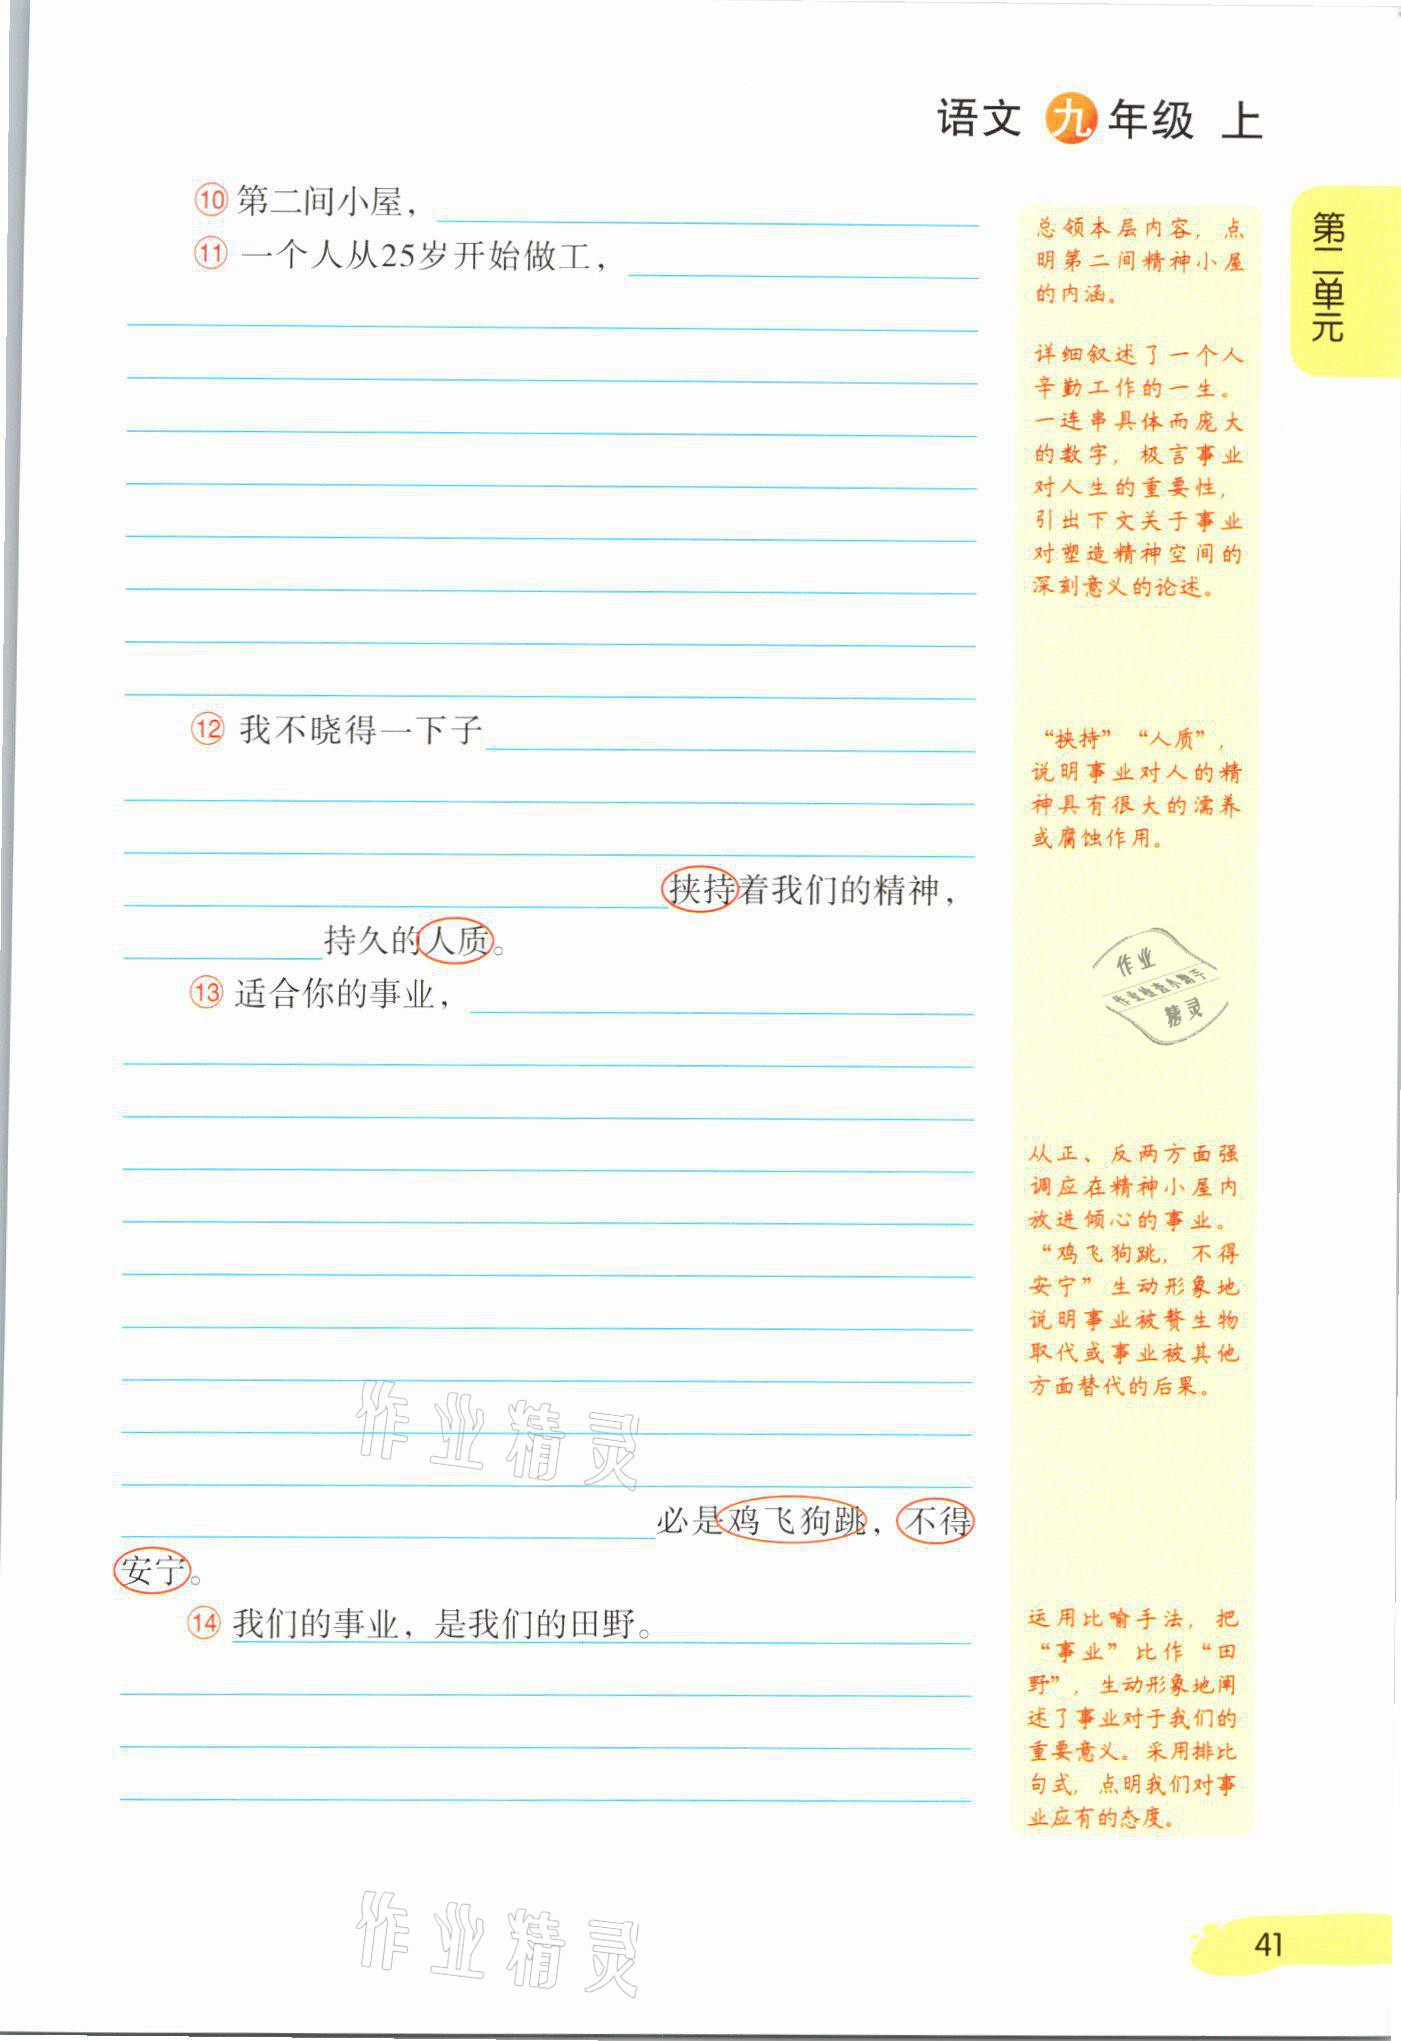 语文 九 年级 上
第二单元
⑩ 第二间小屋，
⑪ 一个人从25岁开始做工，
⑫ 我不晓得一下子
挟持着我们的精神，
持久的人质。
⑬ 适合你的事业，
必是鸡飞狗跳，不得
安宁。
⑭ 我们的事业，是我们的田野。
总领本层内容，点
明第二间精神小屋
的内涵。
详细叙述了一个人
辛勤工作的一生。
一连串具体而庞大
的数字，极言事业
对人生的重要性，
引出下文关于事业
对塑造精神空间的
深刻意义的论述。
“挟持”“人质”，
说明事业对人的精
神具有很大的濡养
或腐蚀作用。
作业
作业检查小助手
精灵
从正、反两方面强
调应在精神小屋内
放进倾心的事业。
“鸡飞狗跳，不得
安宁”生动形象地
说明事业被赘生物
取代或事业被其他
方面替代的后果。
运用比喻手法，把
“事业”比作“田
野”，生动形象地阐
述了事业对于我们的
重要意义。采用排比
句式，点明我们对事
业应有的态度。
作业精灵
作业精灵
41